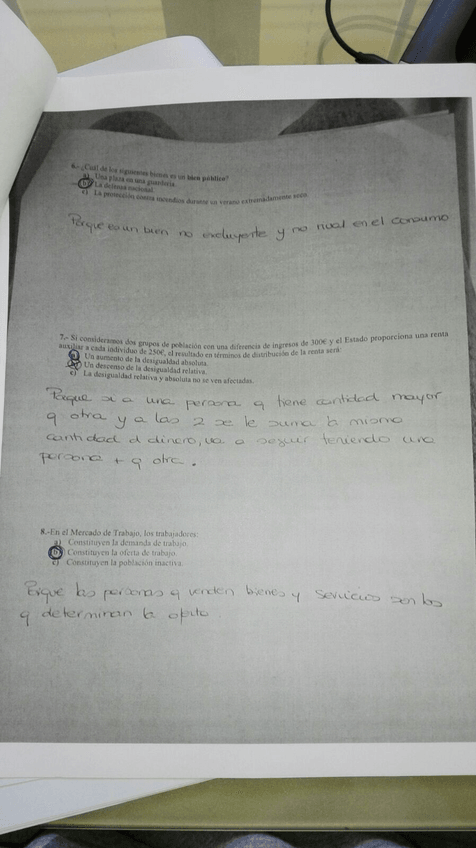 6.- ¿Cuál de los siguientes bienes es un bien público?
a) Una plaza en una guardería.
b) La defensa nacional.
c) La protección contra incendios durante un verano extremadamente seco.
Porque es un bien no excluyente y no rival en el consumo
7.- Si consideramos dos grupos de población con una diferencia de ingresos de 300€ y el Estado proporciona una renta
auxiliar a cada individuo de 250€, el resultado en términos de distribución de la renta será:
a) Un aumento de la desigualdad absoluta.
b) Un descenso de la desigualdad relativa.
c) La desigualdad relativa y absoluta no se ven afectadas.
Porque si a una persona q tiene cantidad mayor
q otra y a las 2 se le suma la misma
cantidad d dinero, va a seguir teniendo una
persona + q otra.
8.-En el Mercado de Trabajo, los trabajadores:
a) Constituyen la demanda de trabajo.
b) Constituyen la oferta de trabajo.
c) Constituyen la población inactiva.
Porque las personas q venden bienes y servicios son los
q determinan la